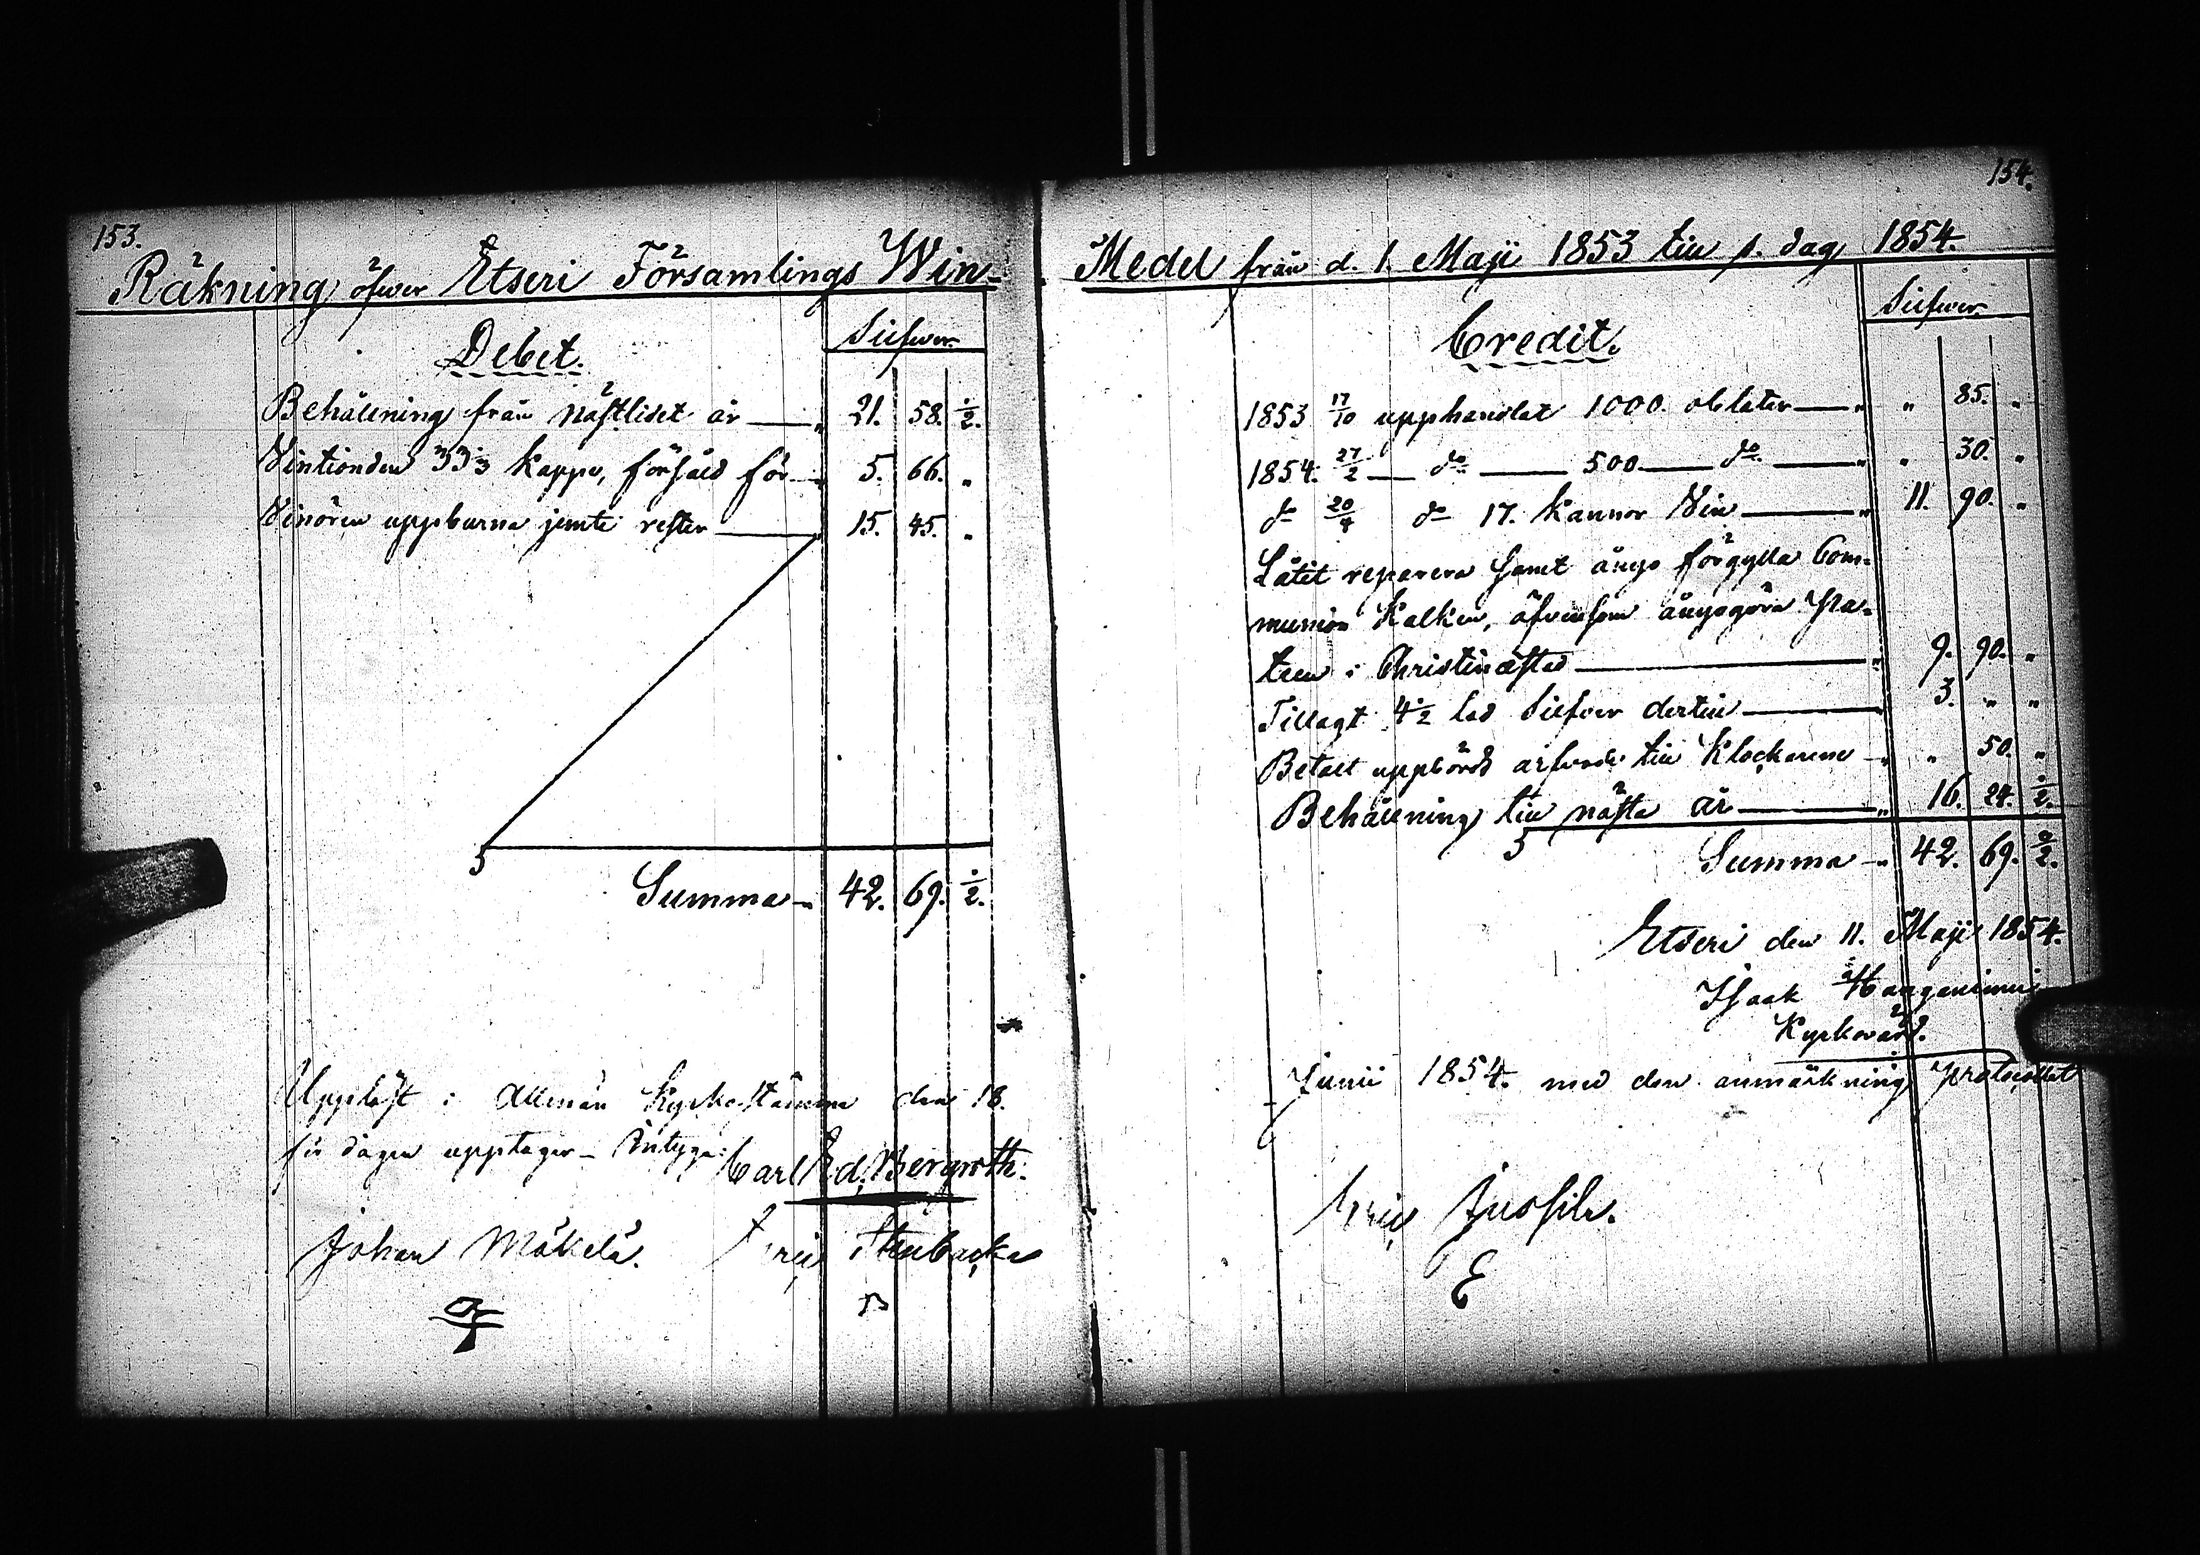 153.
Räkning öfwer Etseri Församlings Win-
Debet.
Silfwer.
Behållning från nästlidet år — " 21. 58. ½.
Vintionden 33⅓ Kappe, försåld för — " 5. 66. "
Vinören uppburna jemte rester — " 15. 45. "
Summa — " 42. 69. ½.
Uppläst i Allmän Kyrkostämma den 18.
för dagen upptager. Intyga:
Carl Ed. Bergroth.
Johan Mäkelä. Eric Stenbacka
154.
Medel från d. 1. Maji 1853 till s. dag 1854.
Credit.
Silfwer.
1853 17/10 upphandlat 1000 oblater — " " 85. "
1854. 27/2 — do — 500 — do — " " 30. "
do 20/4 do 17. Kannor Vin — " 11. 90. "
Låtit reparera samt ånyo förgylla Com-
munion Kalken, äfvensom ånyo göra Pa-
ten i Christinæstad — " 9. 90. "
Tillagt 4½ lod Silfver dertill — " 3. " "
Betalt uppbörds arfvode till Klockarne — " " 50. "
Behållning till nästa år — " 16. 24. ½.
Summa — " 42. 69. ½.
Etseri den 11. Maji 1854.
Isaak Hangasniemi
Kyrkovärd.
Junii 1854. med den anmärkning Protocollet
Eric
E